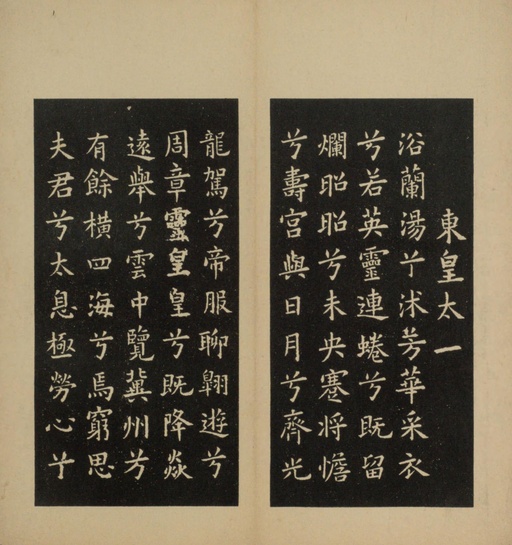 東皇太一
浴蘭湯兮沐芳華采衣
兮若英靈連蜷兮既留
爛昭昭兮未央蹇將憺
兮壽宮與日月兮齊光
龍駕兮帝服聊翱遊兮
周章靈皇皇兮既降焱
遠舉兮雲中覽冀州兮
有餘橫四海兮焉窮思
夫君兮太息極勞心兮